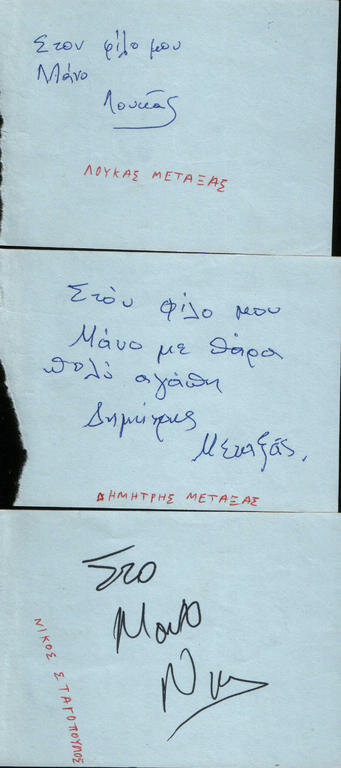 Στον φίλο μου
Μάνο
Λουκάς
ΛΟΥΚΑΣ ΜΕΤΑΞΑΣ
Στον φίλο μου
Μάνο με πάρα
πολύ αγάπη
Δημήτρης
Μεταξάς.
ΔΗΜΗΤΡΗΣ ΜΕΤΑΞΑΣ
Στο
Μάνο
Νικ
ΝΙΚΟΣ Σ ΤΑΓΟΠΟΥΛΟΣ